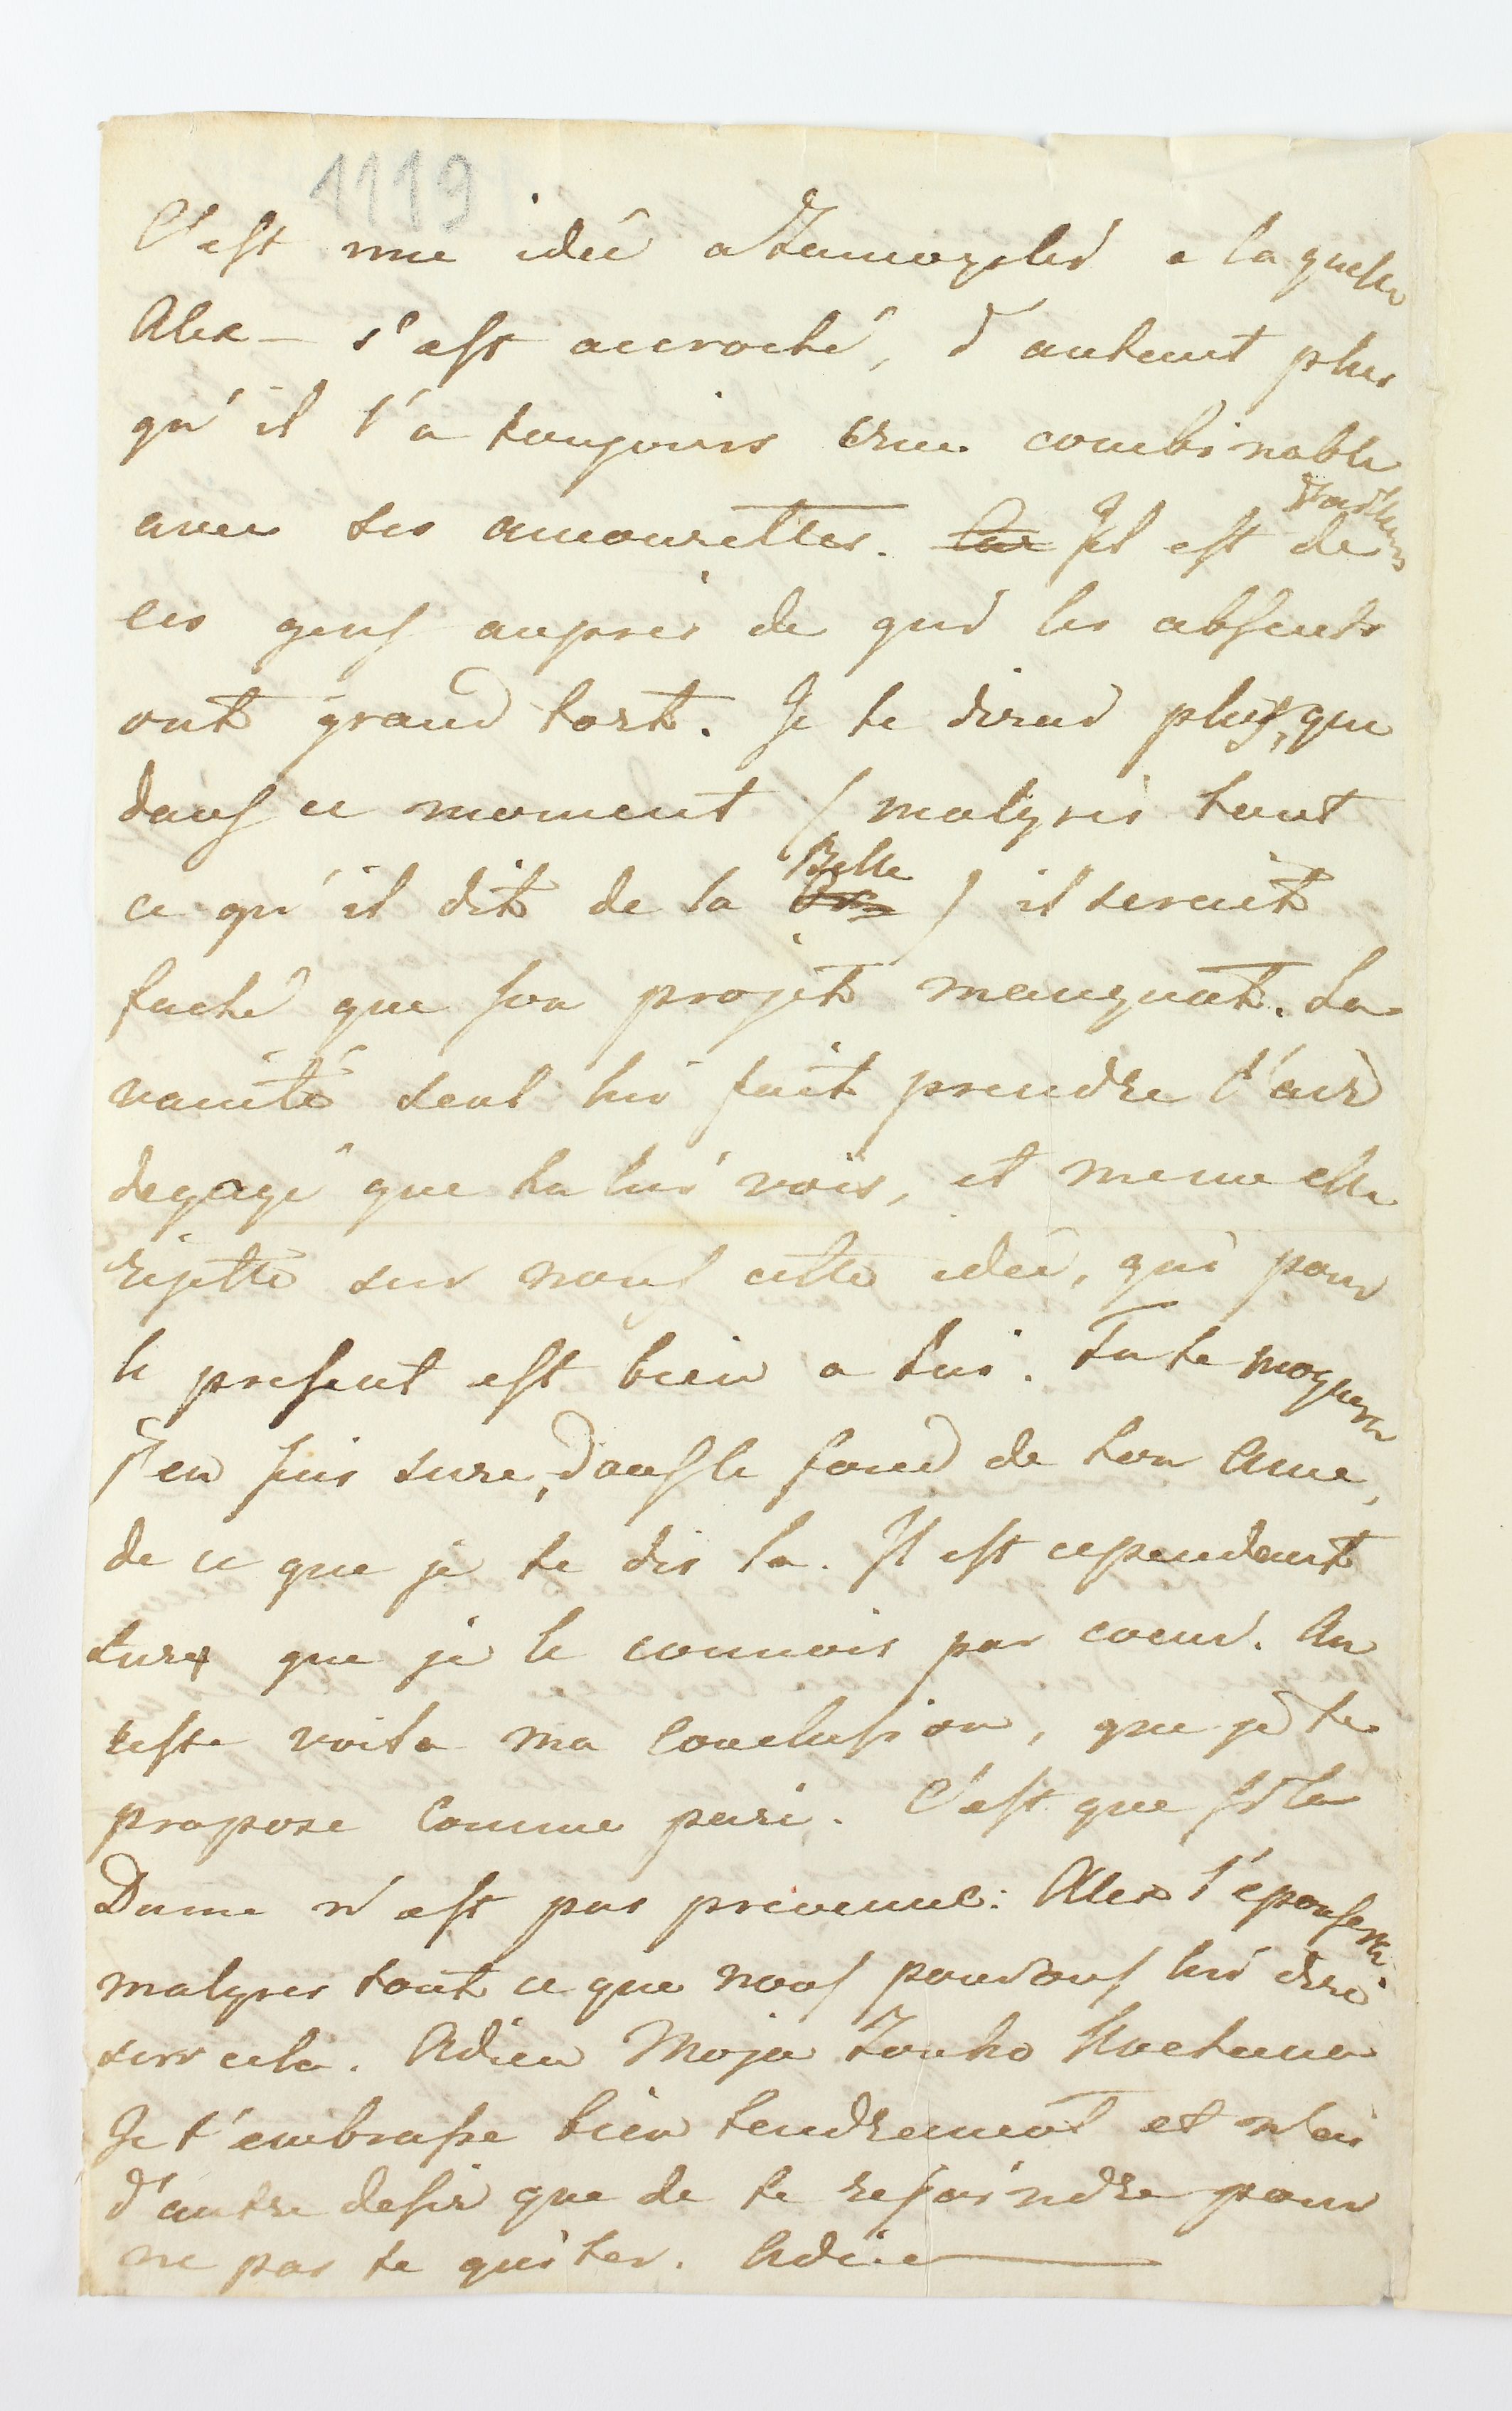 1119
C'est une idée a Zamoyski a laquelle
Alex – s'est accroché, d'autant plus
qu'il l'a toujours crue combinable
avec ses amourettes. Car Il est d'ailleurs de
ces gens aupres de qui les absents
ont grand tort. Je te dirai plus, que
dans ce moment / malgrés tout
ce qu'il dit de la Belle / il serait
faché que son projêt manquat. La
vanité seul lui fait prendre l'air
degagé que tu lui vois, et meme elle
rejette sur nous cette idée, qui pour
le present est bien a lui. Tu te moquera
j'en suis sure, dans le fond de ton Ame,
de ce que je te dis la. Il est cependant
sure que je le connois par coeur. Au
reste voila ma Conclusion, que je te
propose Comme pari. C'est que si la
Dame n'est pas prevenue: Alex l'épousera
malgres tout ce que nous pouvons lui dire
sur cela. Adieu Moja Zonko Kochana
Je t'embrasse bien tendrement et n'ai
d'autre desir que de te rejoindre pour
ne pas te quiter. Adieu